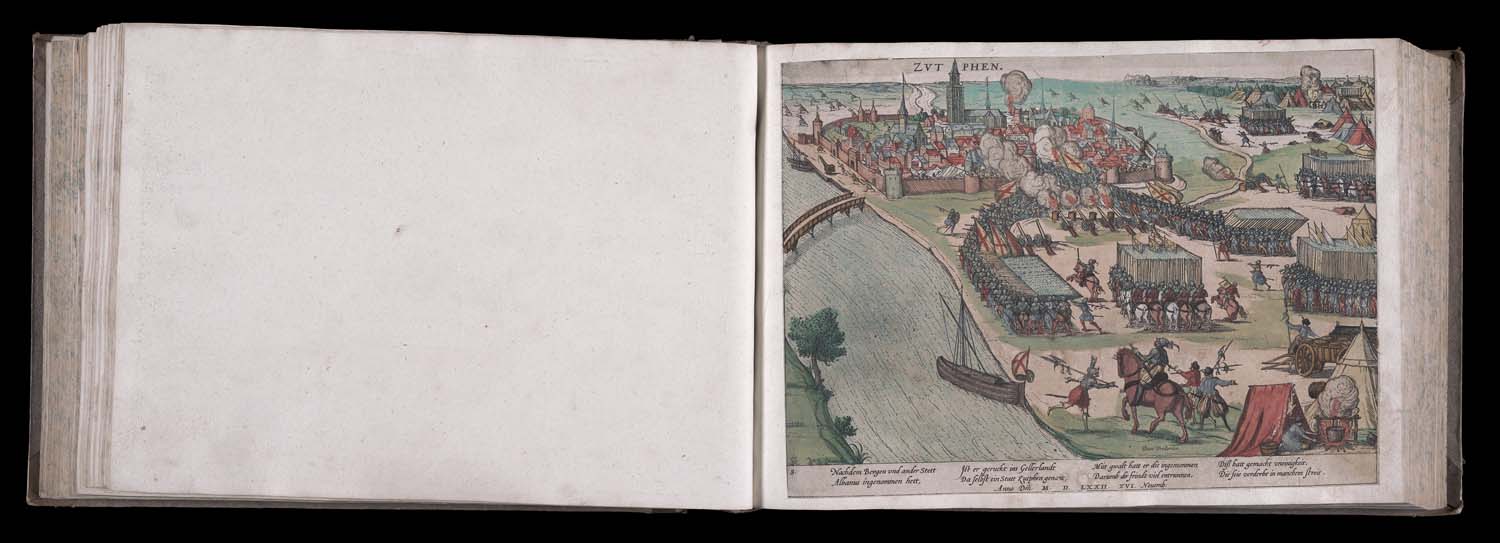 ZVTPHEN.
8
Nachdem Bergen vnd ander Stett
Albanus ingenommen hett,
Ist er geruckt ins Gellerlandt
Da selbst ein Statt Zutphen genant,
Mitt gwalt hatt er die ingenommen
Darumb der feindt viel entrunnen.
Diss hatt gemacht vneinigkeit.
Die sein verderbt in manchem streit.
Anno Dñi. M. D. LXXII. XVI. Nouemb.